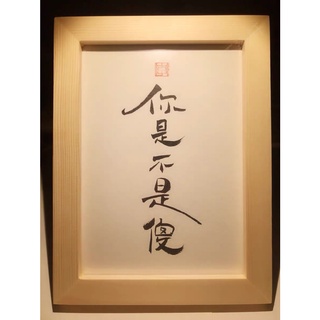 你是不是傻